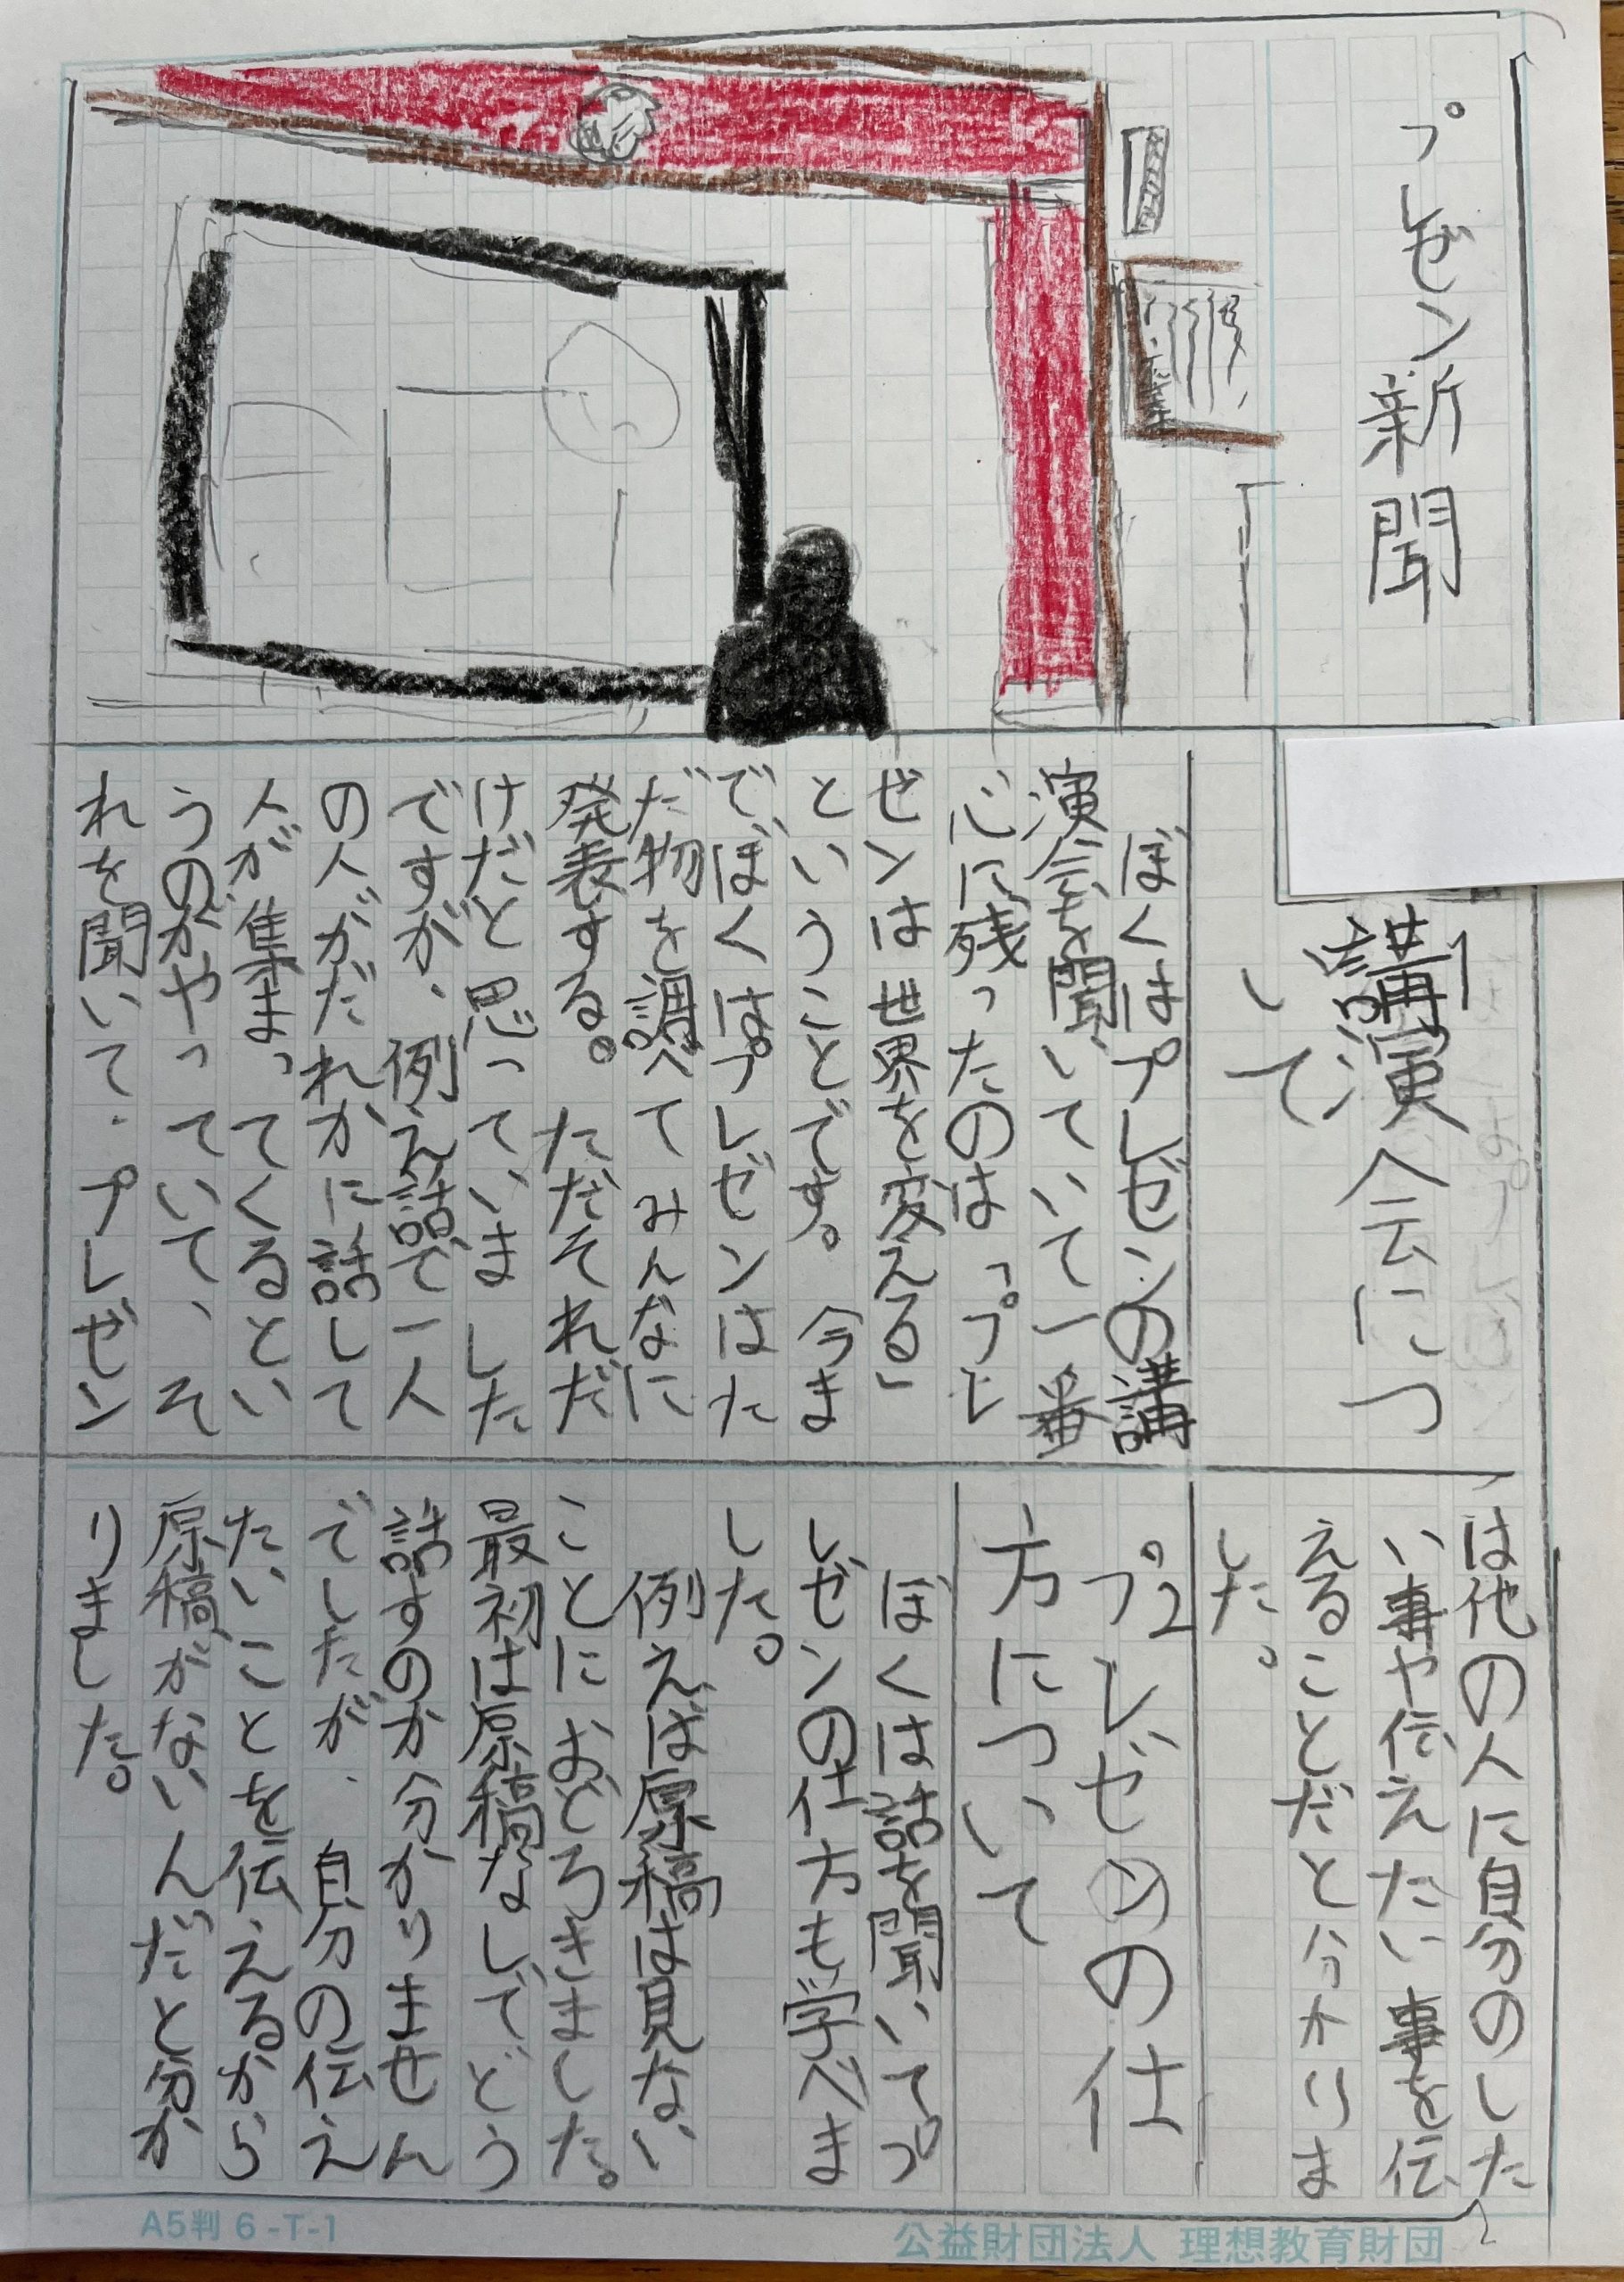 プレゼン新聞
講演会につ
いて
ぼくはプレゼンの講
演会を聞いていて一番
心に残ったのは「プレ
ゼンは世界を変える」
ということです。今ま
でぼくはプレゼンはた
だ物を調べてみんなに
発表する。ただそれだ
けだと思っていました
ですが、例え話で一人
の人がだれかに話して
人が集まってくるとい
うのがやっていて、そ
れを聞いて、プレゼン
は他の人に自分のした
い事や伝えたい事を伝
えることだと分かりま
した。
プレゼンの仕
方について
ぼくは話を聞いてプ
レゼンの仕方も学べま
した。
例えば原稿は見ない
ことにおどろきました。
最初は原稿なしでどう
話すのか分かりません
でしたが、自分の伝え
たいことを伝えるから
原稿がないんだと分か
りました。
A5判 6-T-1
公益財団法人 理想教育財団